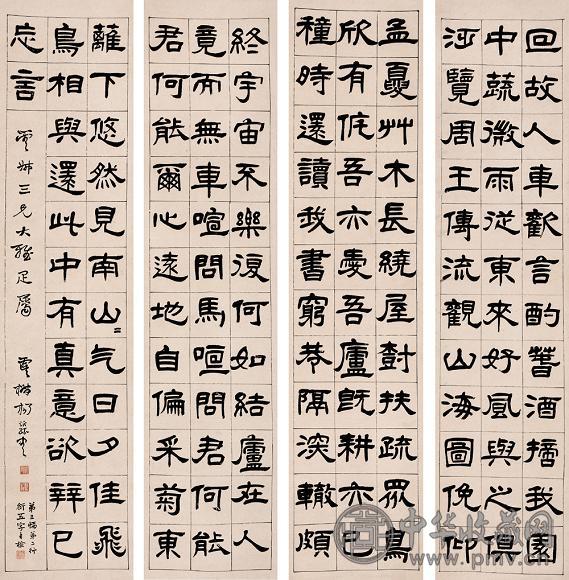 回故人車歡言酌萅酒擿我園
中蔬微雨從東來好風與之具
汎覽周王傳流觀山海圖俛仰
孟夏艸木長繞屋尌扶疏眾鳥
欣有侂吾亦愛吾廬既耕亦已
種時還讀我書窮巷隔深轍頗
終宇宙不樂復何如結廬在人
竟而無車喧問馬喧問君何能
君何能爾心遠地自偏采菊東
離下悠然見南山〻气日夕佳飛
鳥相與還此中有真意欲辝已
忘言
三兄大雅正屬
第三幅第二行
衍五字
中华收藏网
www.pmv.cn